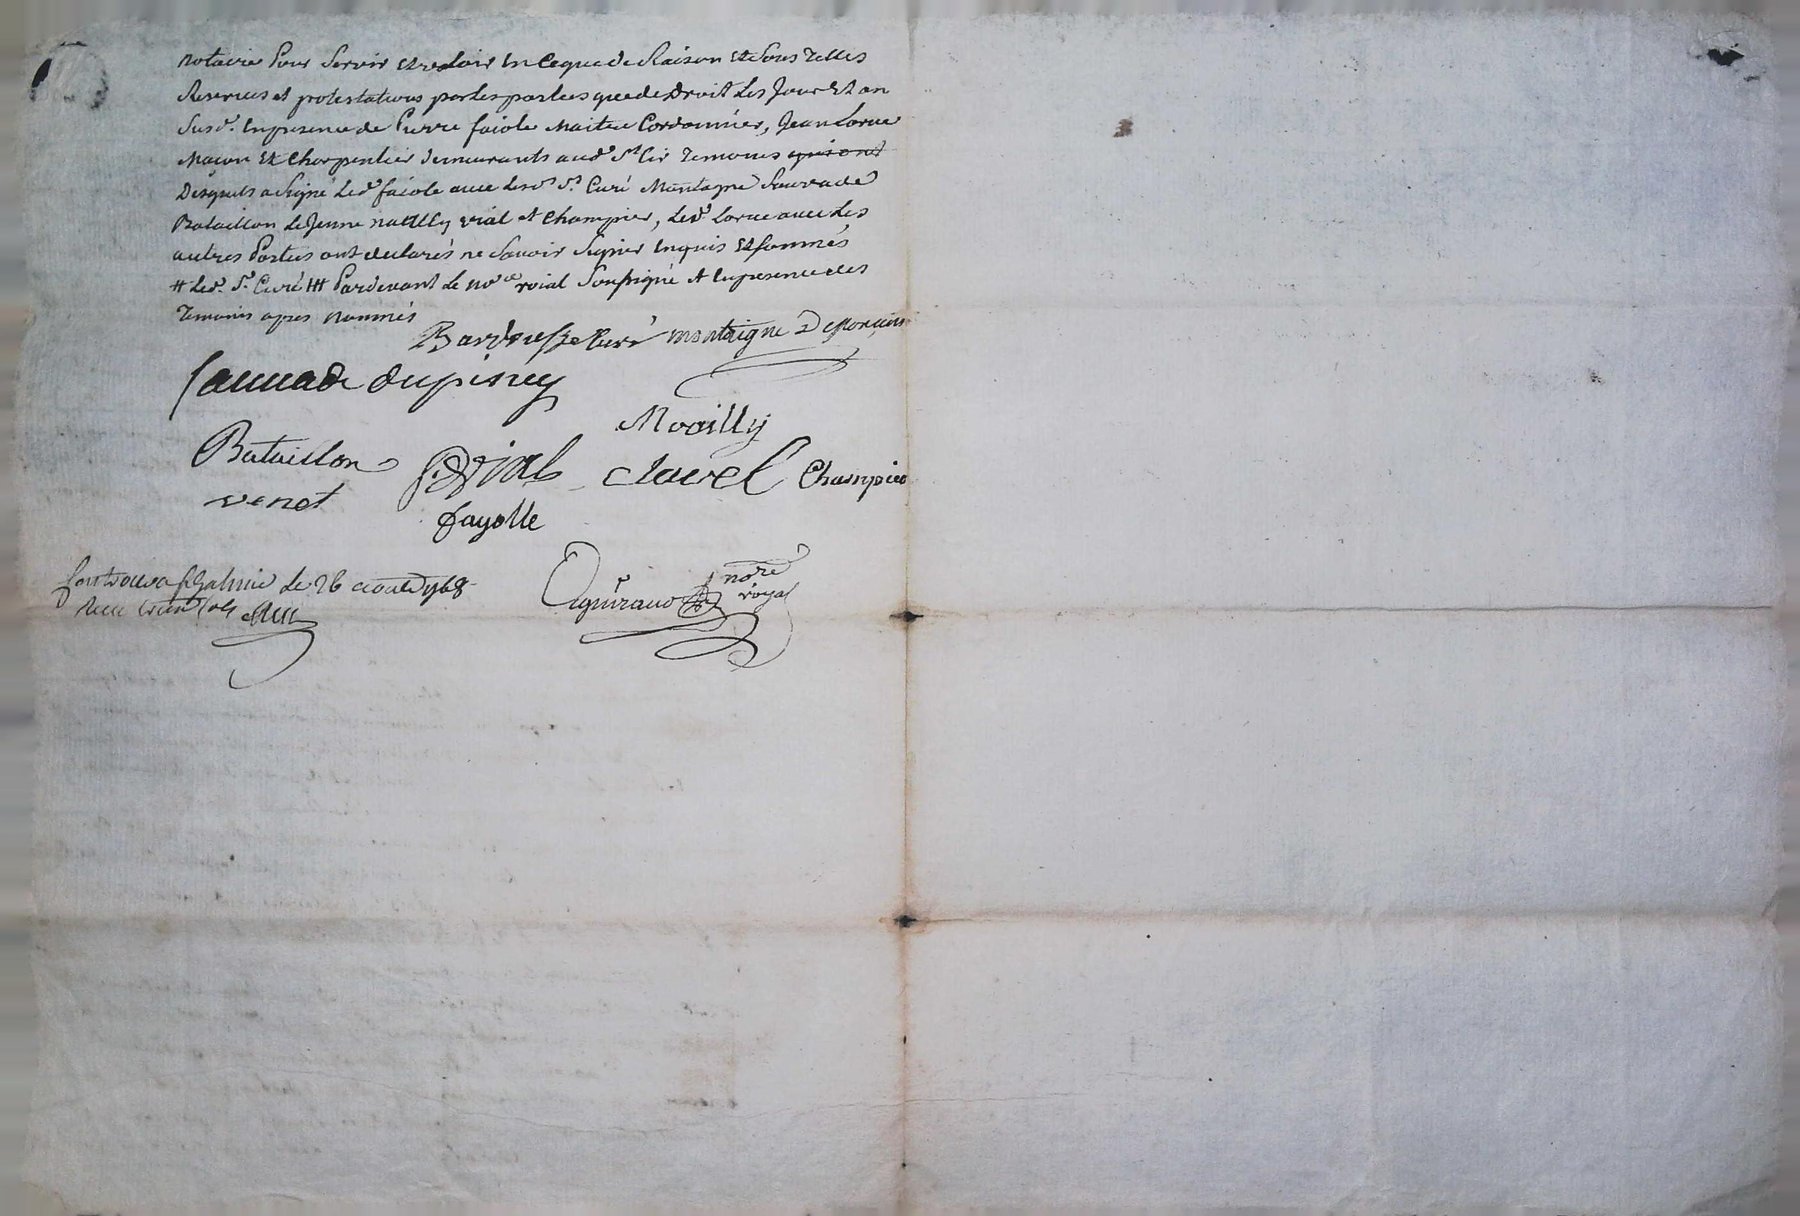 notaire Pour Servir Et valoir En Ceque de Raison Et Sous Telles
Reserves et protestations par les parties que de Droit Les Jour Et an
Susd. En presence de Pierre faiole Maitre Cordonnier, Jean Lorue
Maçon Et Charpentier demeurants aud. St. Cir Temoins qui ont
Desquels a Signé Led. faiole avec Lesd. Sr. Curé Montagne Sauvade
Bataillon Le Jeune noailly vial et Champier, Led. Lorue avec Les
autres Parties ont declarés ne Savoir Signer Enquis Et sommés
# Led. Sr. Curé ## Pardevant Le nore roial Soussigné Et En presence des
Temoins apres nommés
curé montaigne De
Sauuade dupiney
Noailly
Bataillon vial clavel Champier
venot
fayolle
nore
royal
le 26 aout 1768